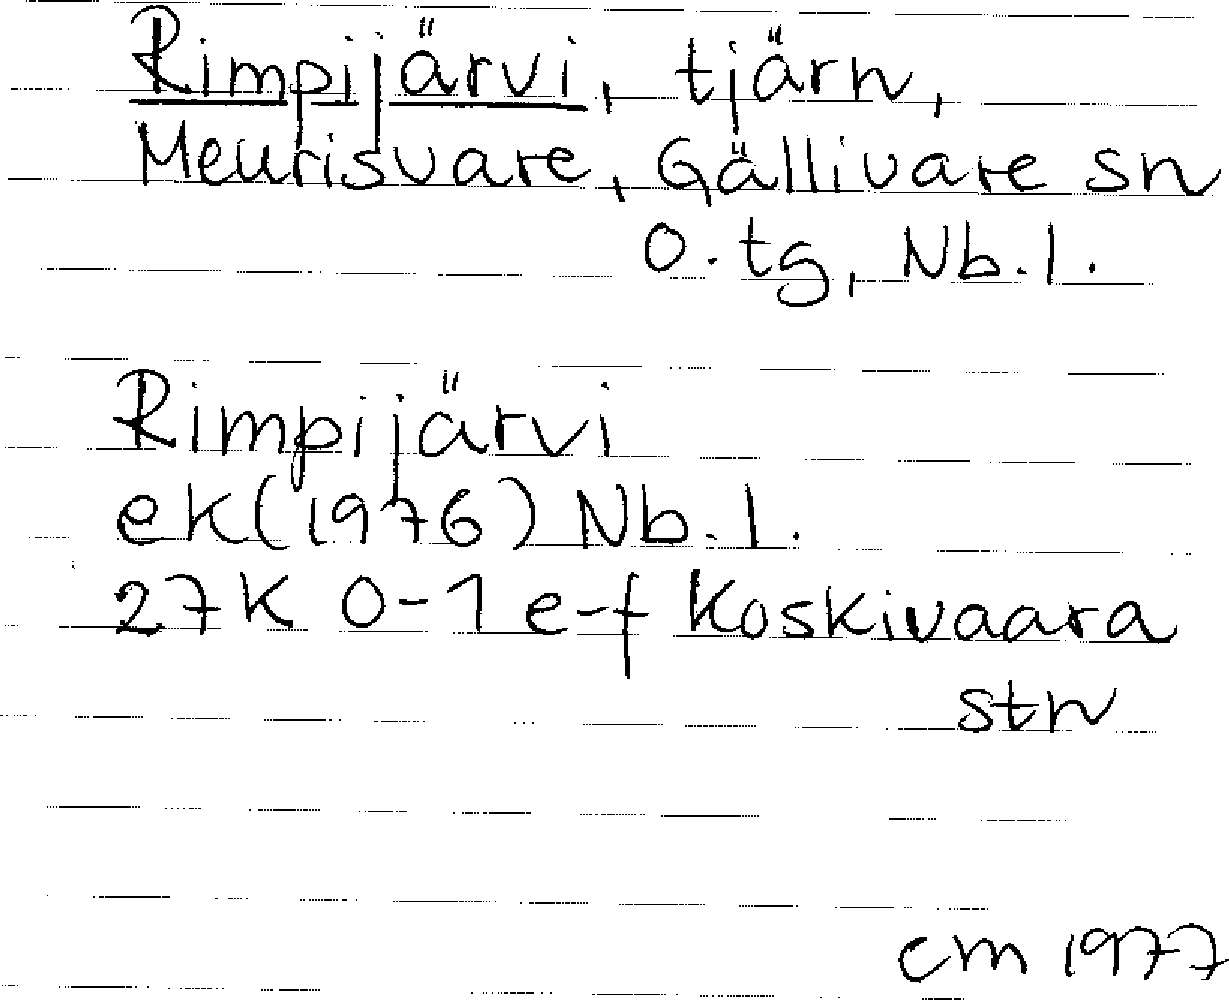 Rimpijärvi, tjärn,
Meurisvare, Gällivare sn
O. tg, Nb. l.
Rimpijärvi
ek (1976) Nb. l.
27K 0-1 e-f Koskivaara
stn
cm 1977